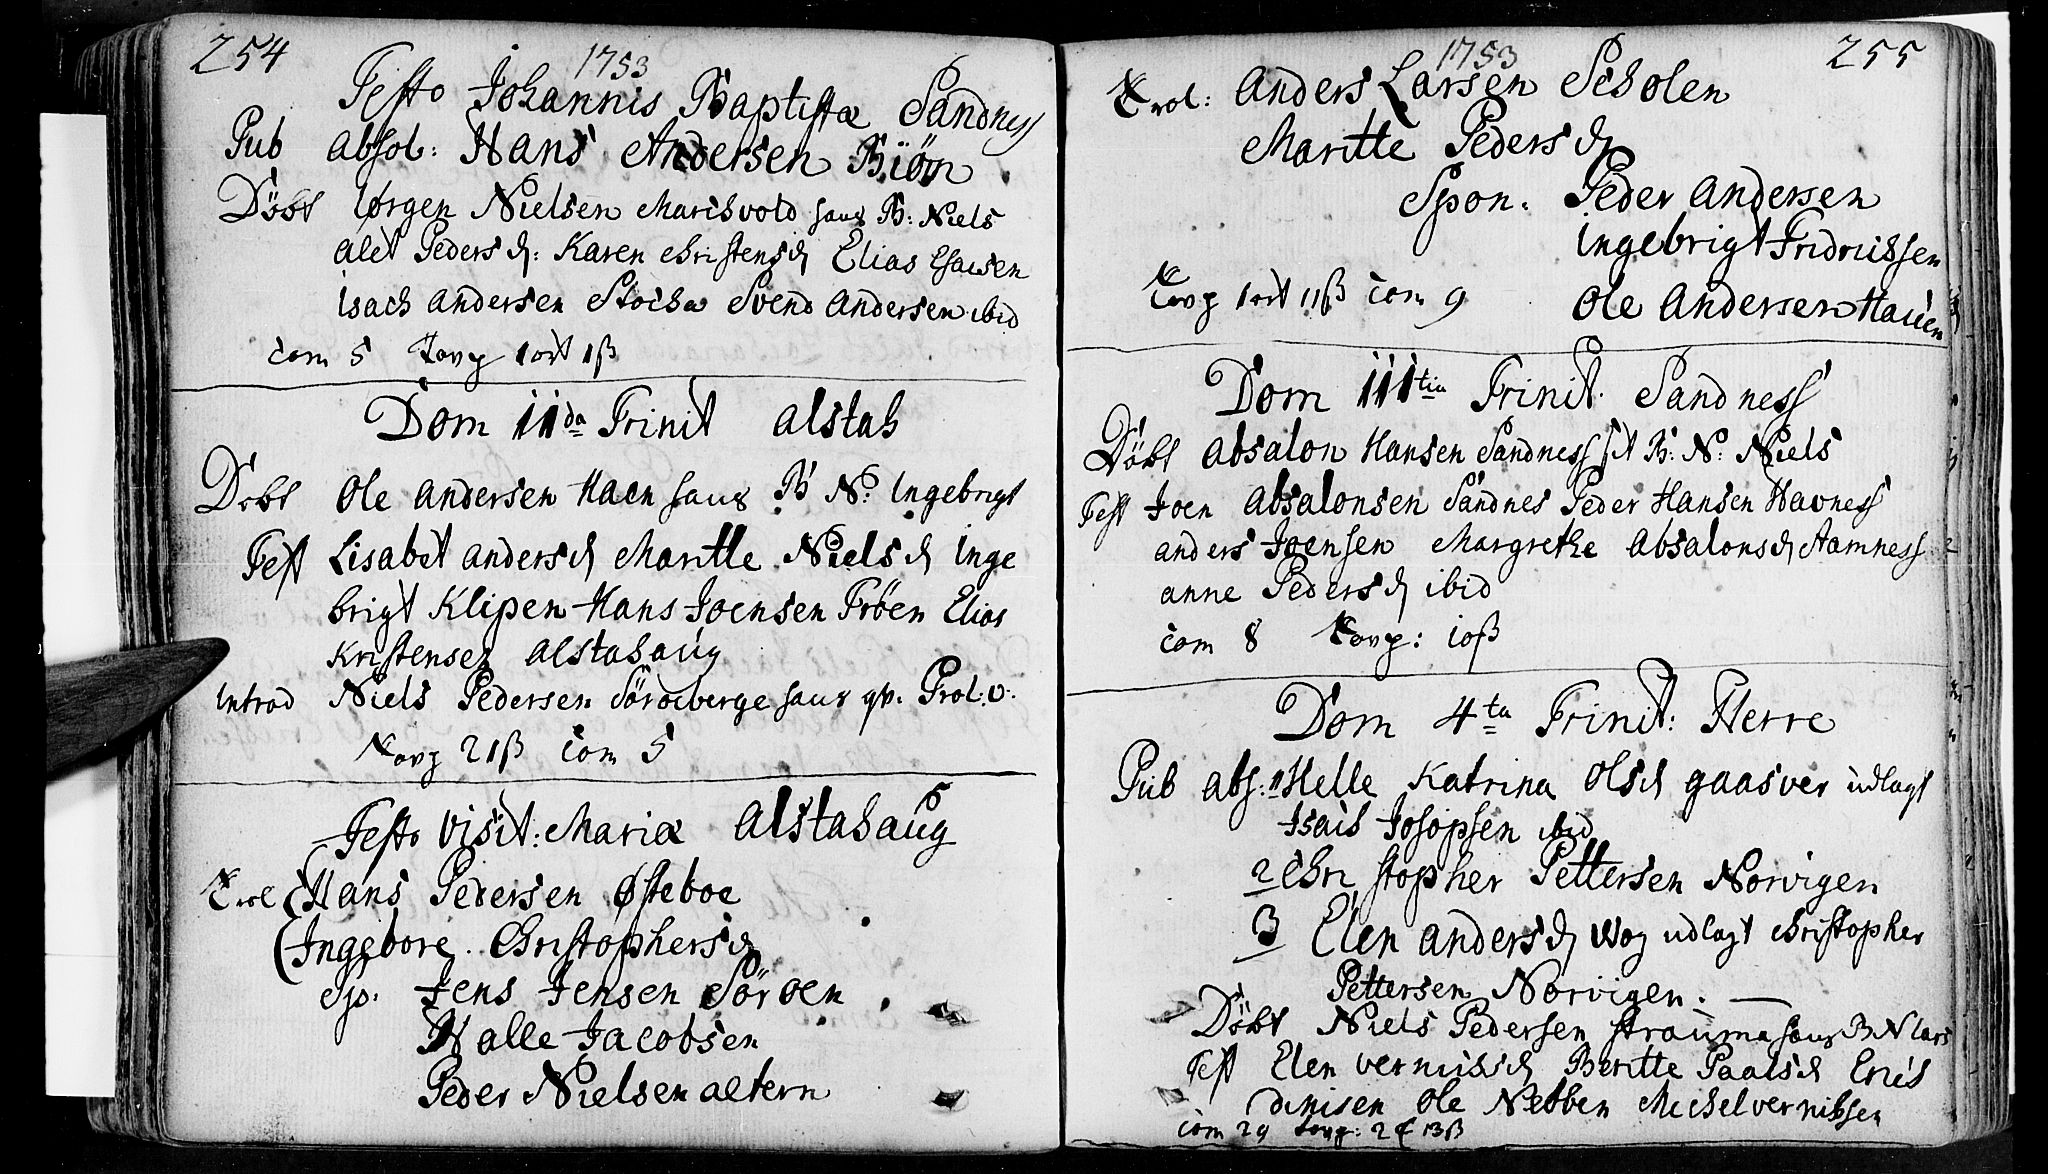 254
1753
Festo Johannis Baptistæ Sandness
Pub absol: Hans Andersen Biön
Döbt Jørgen Nielsen Marisvold B: Niels
alet Peders d: Karen Christens d Elias Esaisen
isach andersen Stocha Svend Andersen ibid
com 5 Tavg 1 ort 1ß
Dom IIda Trinit alstah
Döbt Ole andersen Haen B N: Ingebrigt
Test Lisabet anders d Maritte Niels d inge
brigt Klipen Hans Joensen Tröen Elias
Kristensen alstahaug
introd Niels Pedersen
Tavg 21ß Com 5
Festo Visit: Mariæ Alstahaug
Trol Hans Pedersen Østeboe
Ingebore Christophers d
Sp. Jens Jensen Söroen
Halle Jacobsen
Peder Nielsen altern
1753
255
Trol: Anders Larsen Scholen
Maritte Peders d
Spon. Peder Andersen
ingebrigt Fridrichsen
Tavg 1 ort 11ß Com 9 Ole Andersen Hauen
Dom IIItia Trinit. Sandness
Döbt Absalon Hansen Sandness B: N: Niels
Test Joen Absalonsen Sandnes Peder Hansen Havness
anders Joensen Margrethe Absalons d Aamness
anne Peders d ibid
com 8 Tavg: 10ß
Dom 4ta Trinit: Herre
Pub abs: 1 Helle Katrina Ols d gaasver udlagt
Isais Josopsen ibid
2 Christopher Pettersen Norvigen
3 Elen Anders d Wog udlagt Christopher
Pettersen Norvigen.
Döbt Niels Pedersen Strauma B N Lars
Test Elen vernichs d Beritte Paals d Erich
Ole Nebben Michel
com 29 Tavg: 2 13ß